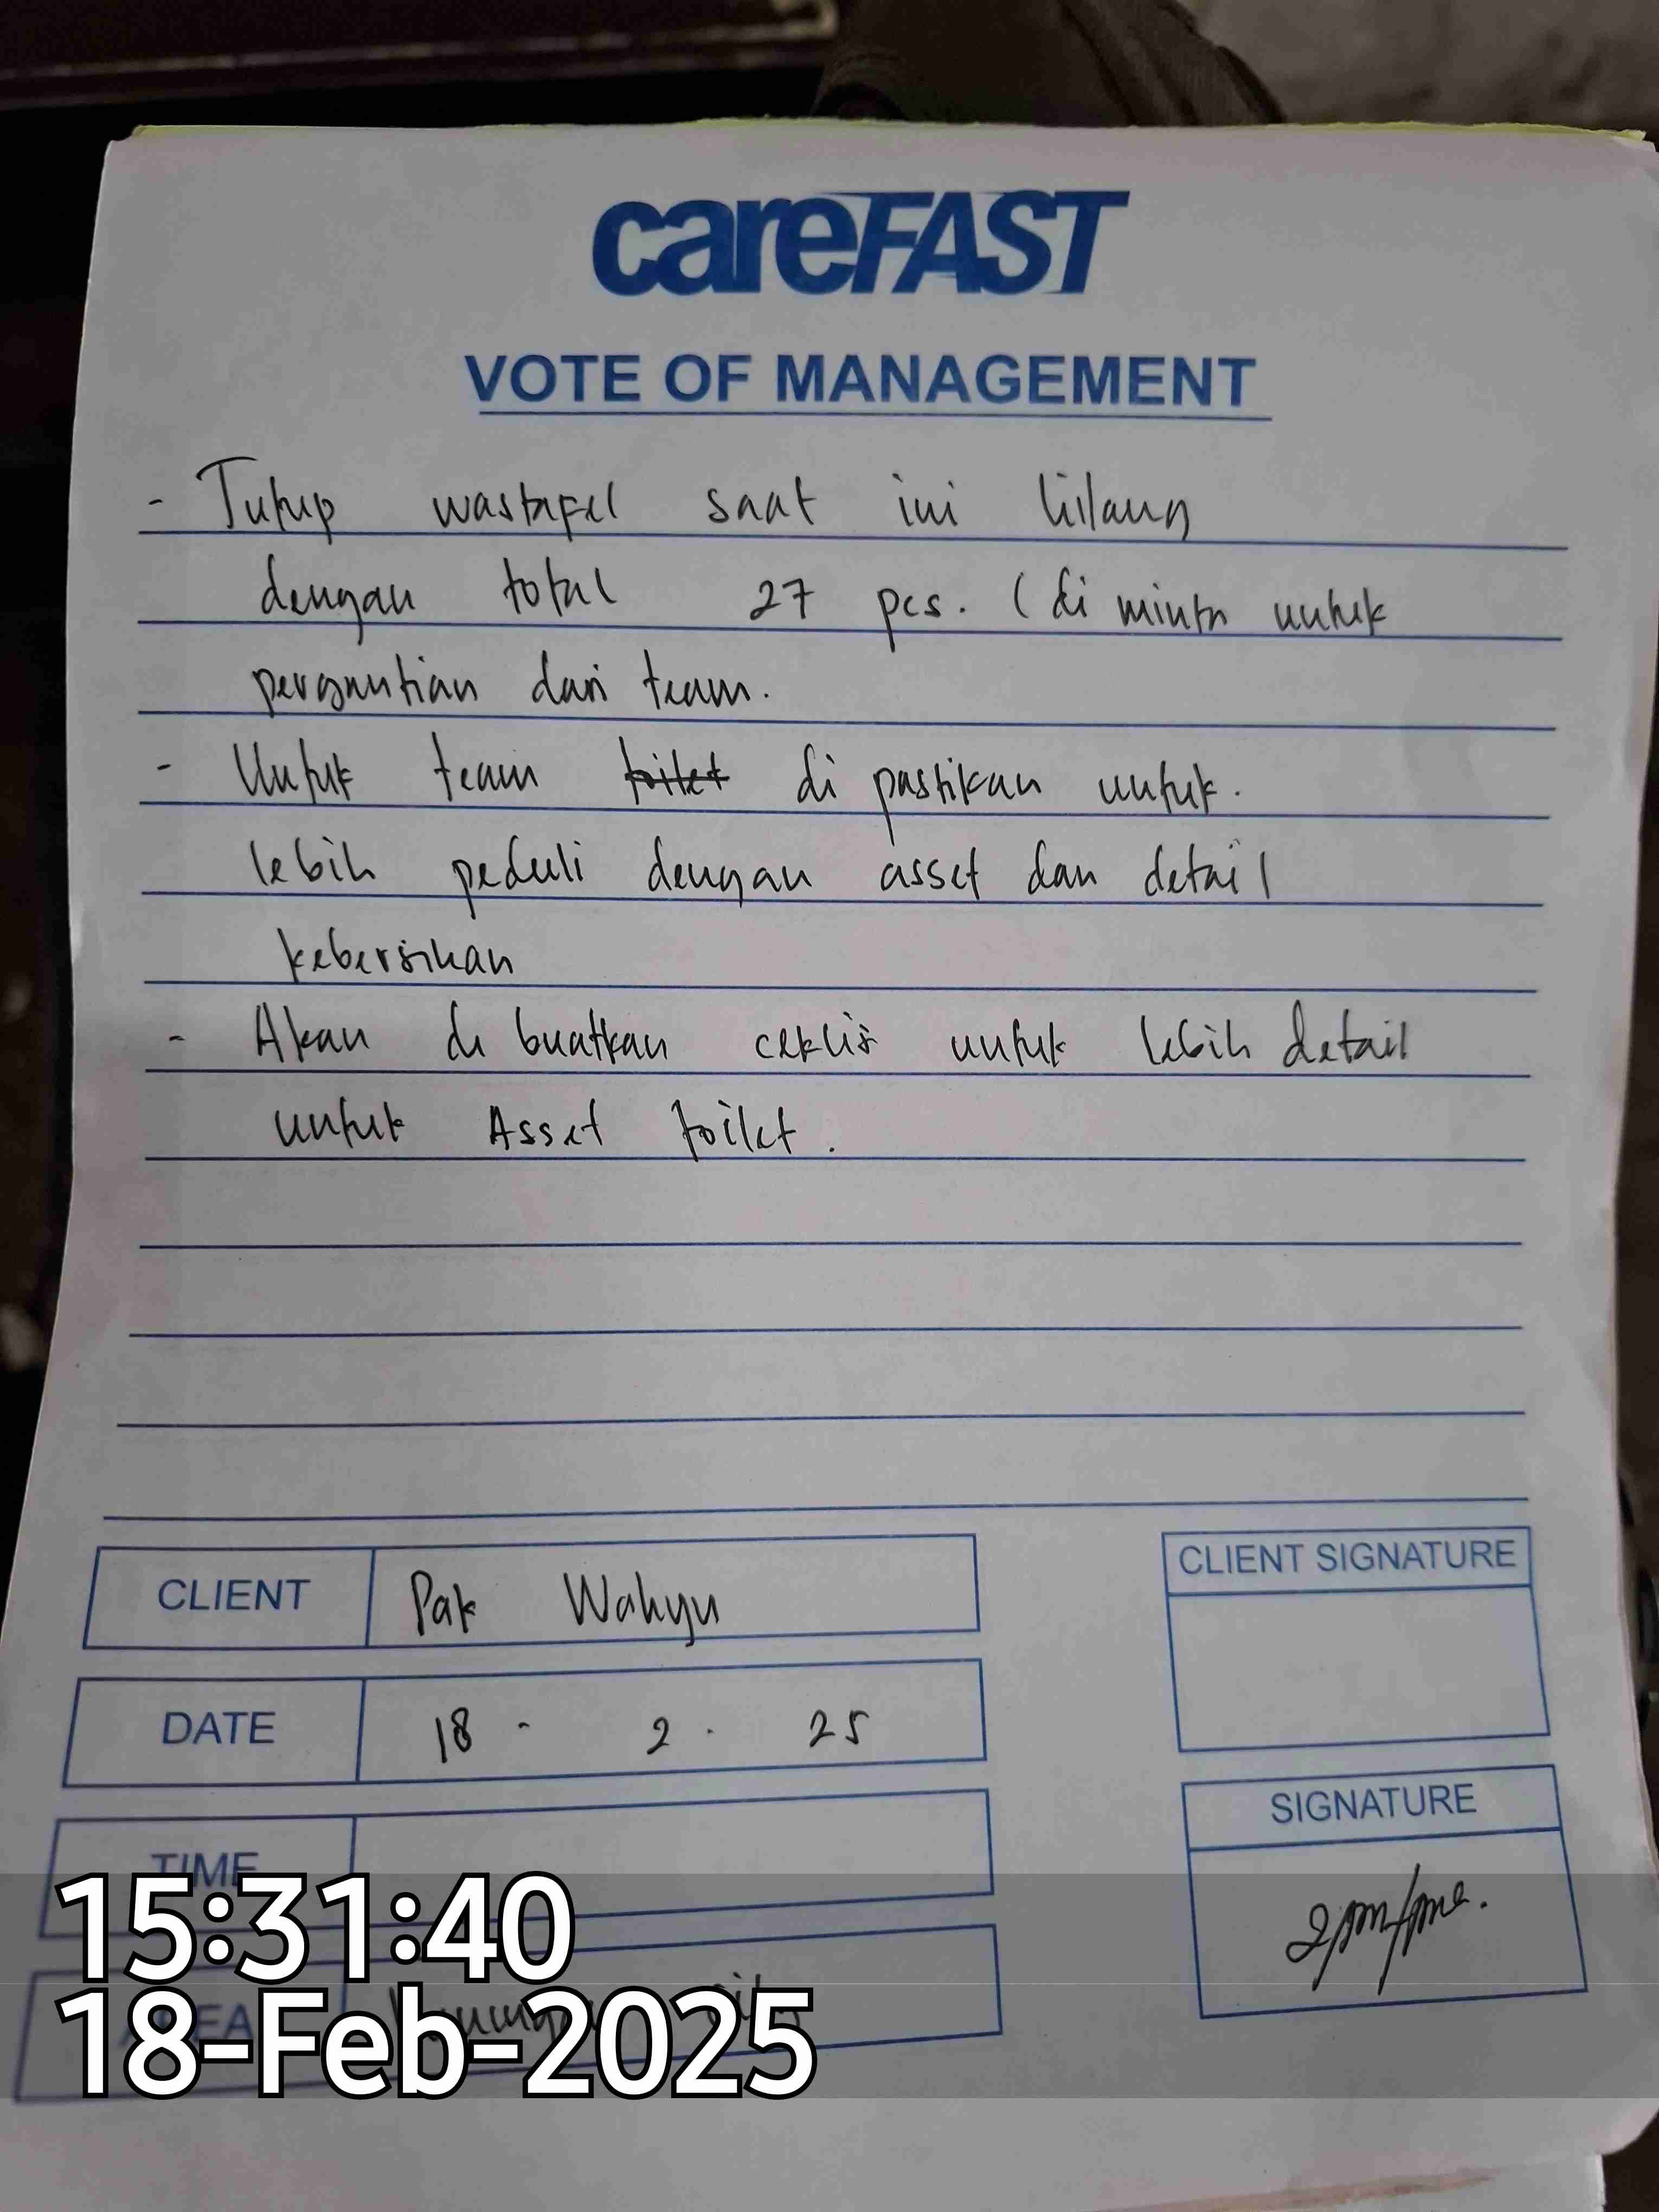 careFAST
VOTE OF MANAGEMENT
- Tutup wastafel saat ini hilang
dengan total 27 pcs. (di minta untuk
pergantian dari team.
- Untuk team toilet di pastikan untuk.
lebih peduli dengan asset dan detail
kebersihan
- Akan di buatkan ceklis untuk lebih detail
untuk Asset toilet.
CLIENT Pak Wahyu
CLIENT SIGNATURE
DATE 18 - 2 . 25
SIGNATURE
TIME
15:31:40
AREA
18-Feb-2025